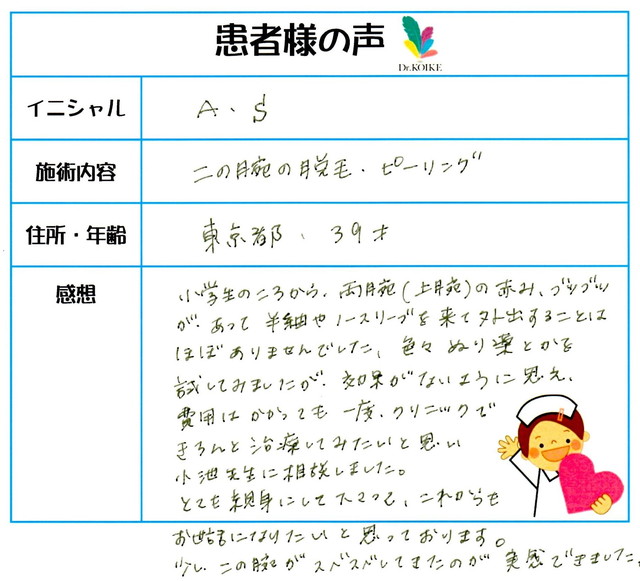 患者様の声
Dr.KOIKE
イニシャル
A・S
施術内容
二の腕の脱毛・ピーリング
住所・年齢
東京都、39才
感想
小学生のころから、両腕(上腕)の赤み、ブツブツ
が、あって半袖やノースリーブを来て外出することは
ほぼありませんでした、色々ぬり薬とかを
試してみましたが、効果がないように思え、
費用はかかっても一度、クリニックで
きちんと治療してみたいと思い
小池先生に相談しました。
とても親身にして下さって、これからも
お世話になりたいと思っております。
少し、二の腕がスベスベしてきたのが実感できました。